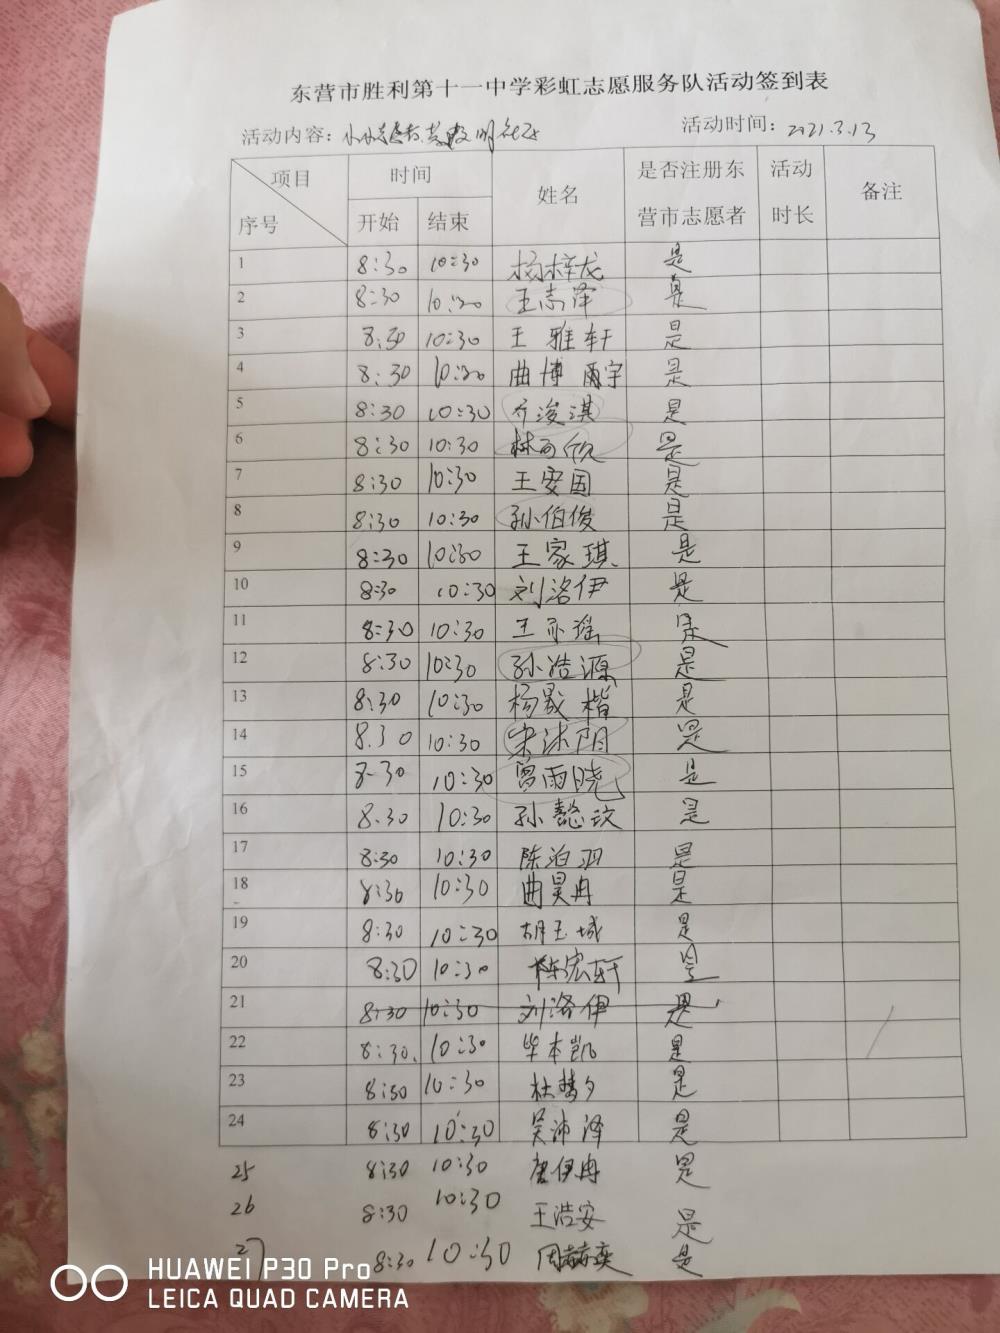 东营市胜利第十一中学彩虹志愿服务队活动签到表
活动内容: 活动时间: 2021.3.13
项目 时间 姓名 是否注册东 活动 备注
序号 开始 结束 营市志愿者 时长
1 8:30 10:30 杨梓龙 是
2 8:30 10:30 王志泽 是
3 8:30 10:30 王雅轩 是
4 8:30 10:30 曲博雨宇 是
5 8:30 10:30 乔浚淇 是
6 8:30 10:30 林可欣 是
7 8:30 10:30 王安国 是
8 8:30 10:30 孙伯俊 是
9 8:30 10:30 王家琪 是
10 8:30 10:30 刘洛伊 是
11 8:30 10:30 王亦瑶 是
12 8:30 10:30 孙浩源 是
13 8:30 10:30 杨晟楷 是
14 8.30 10:30 宋沐阳 是
15 8.30 10:30 雨晓 是
16 8.30 10:30 孙懿汶 是
17 8:30 10:30 陈泊羽 是
18 8:30 10:30 曲昊冉 是
19 8:30 10:30 胡玉城 是
20 8:30 10:30 陈宏轩 是
21 8:30 10:30 刘洛伊 是
22 8:30. 10:30 毕本凯 是
23 8:30 10:30 杜梦夕 是
24 8:30 10:30 吴沛泽 是
25 8:30 10:30 唐伊冉 是
26 8:30 10:30 王浩安 是
27 8:30 10:30 周赫奕 是
HUAWEI P30 Pro
LEICA QUAD CAMERA